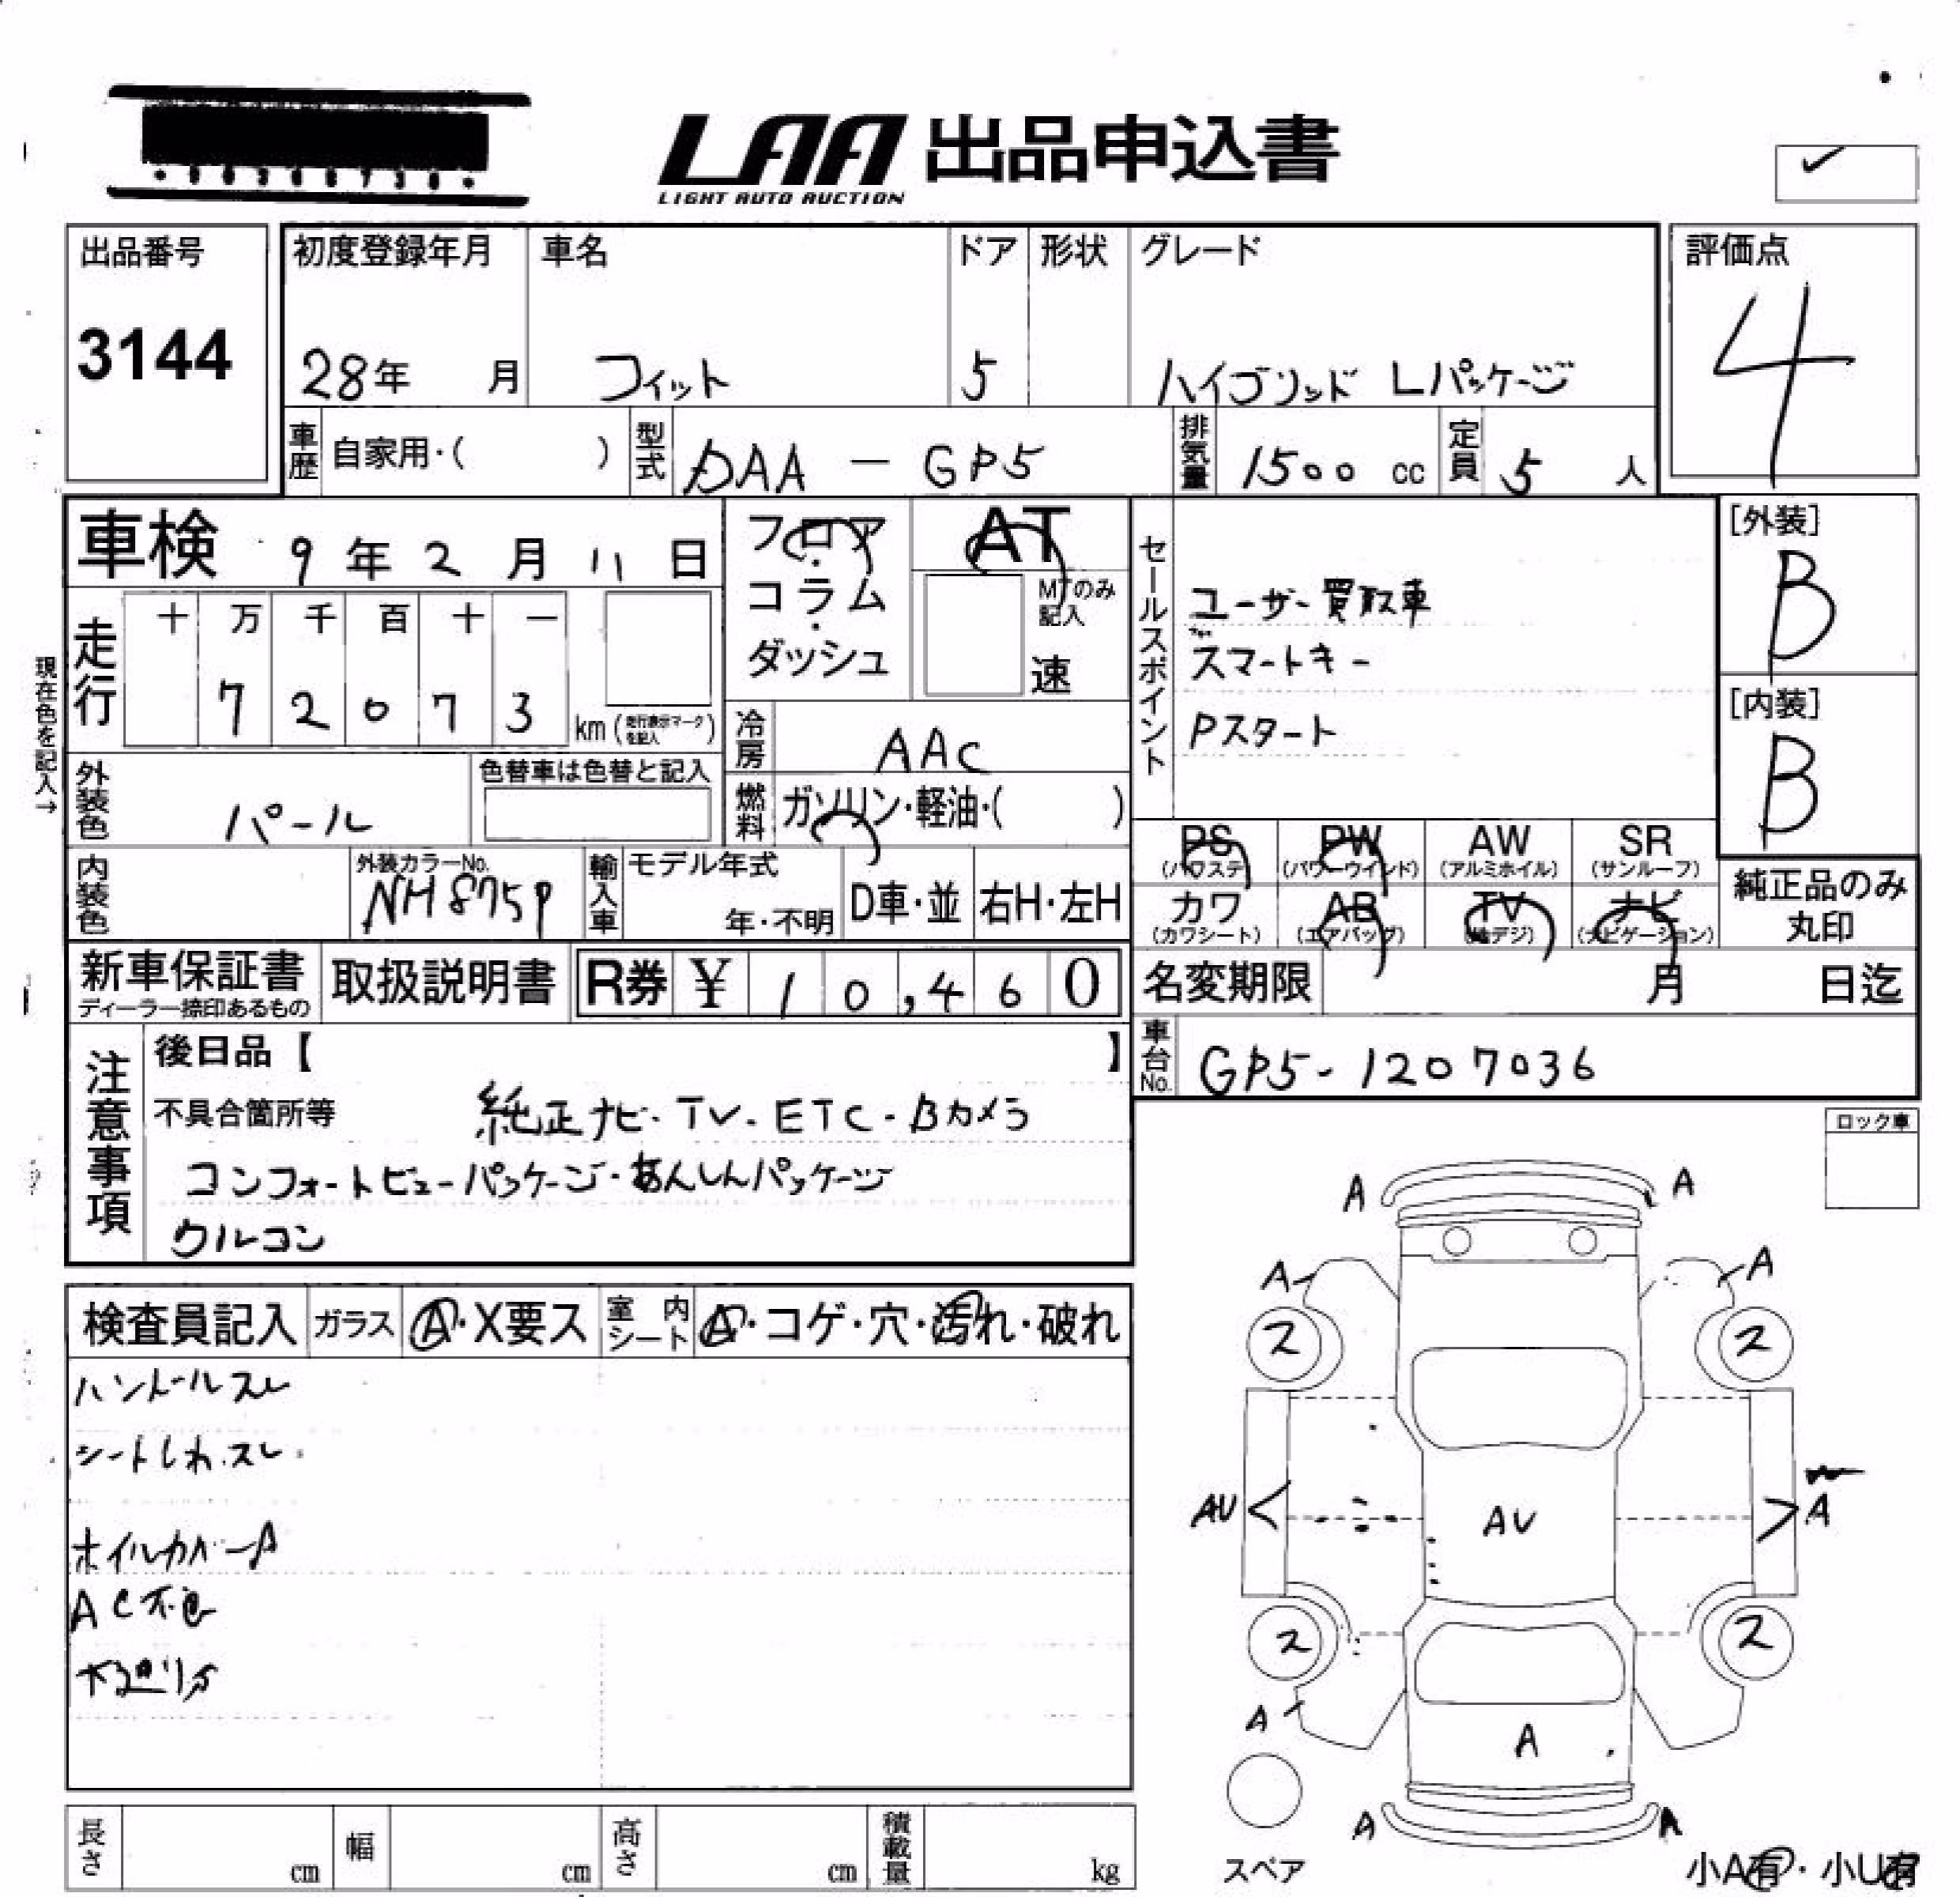 LAA 出品申込書
LIGHT AUTO AUCTION
出品番号
3144
初度登録年月
28年 月
車名
フィット
ドア
5
形状
グレード
ハイブリッド Lパッケージ
評価点
4
車歴 自家用・( )
型式 DAA - GP5
排気量 1500 cc
定員 5 人
車検 9年 2月 11日
フロア・コラム・ダッシュ
AT
MTのみ記入
速
セールスポイント
ユーザー買取車
スマートキー
Pスタート
[外装]
B
[内装]
B
現在色を記入→
走行
十 万 千 百 十 一
7 2 0 7 3
km (走行表示マークを記入)
冷房 AAC
燃料 ガソリン・軽油・( )
外装色 パール
色替車は色替と記入
内装色
外装カラーNo.
NH875P
輸入車
モデル年式
年・不明
D車・並
右H・左H
PS (パワステ)
PW (パワーウインド)
AW (アルミホイル)
SR (サンルーフ)
カワ (カワシート)
AB (エアバッグ)
TV (地デジ)
ナビ (ナビゲーション)
純正品のみ丸印
新車保証書
ディーラー捺印あるもの
取扱説明書
R券 ¥ 10,460
名変期限 月 日迄
車台No. GP5-1207036
注意事項
後日品【 】
不具合箇所等
純正ナビ・TV・ETC・Bカメラ
コンフォートビューパッケージ・あんしんパッケージ
クルコン
ロック車
検査員記入
ガラス A・X要ス
室内シート A・コゲ・穴・汚れ・破れ
ハンドルスレ
シートしわ.スレ
ホイルカバーA
A A
A A
ス ス
AU AU A
ス ス
A
A
A A
スペア
小A有・小U有
長さ cm
幅 cm
高さ cm
積載量 kg